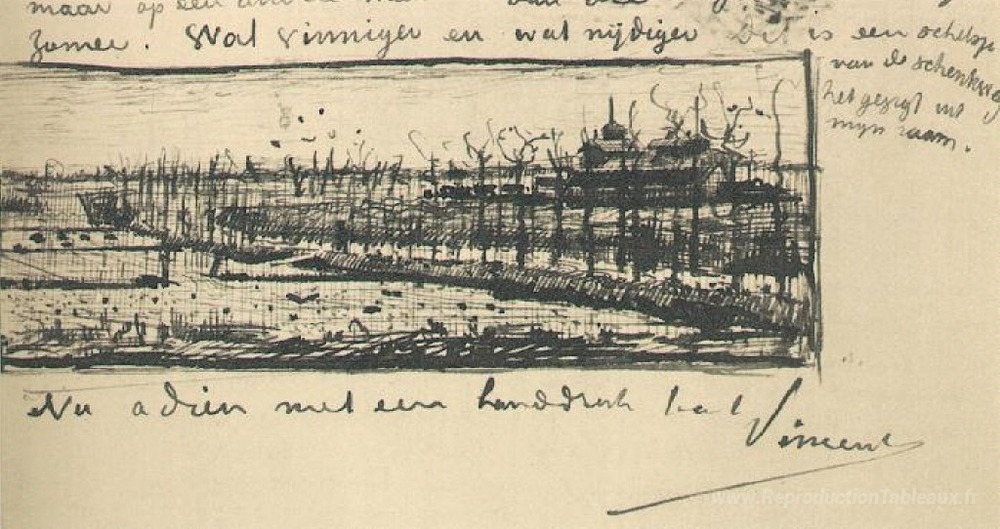 maar op een
zomer. Wat vinniger en wat nijdiger Dit is een schetsje
van de schenkweg
het gezigt uit
mijn raam.
Nu adieu met een handdruk t. à t.
Vincent
www.ReproductionTableaux.fr